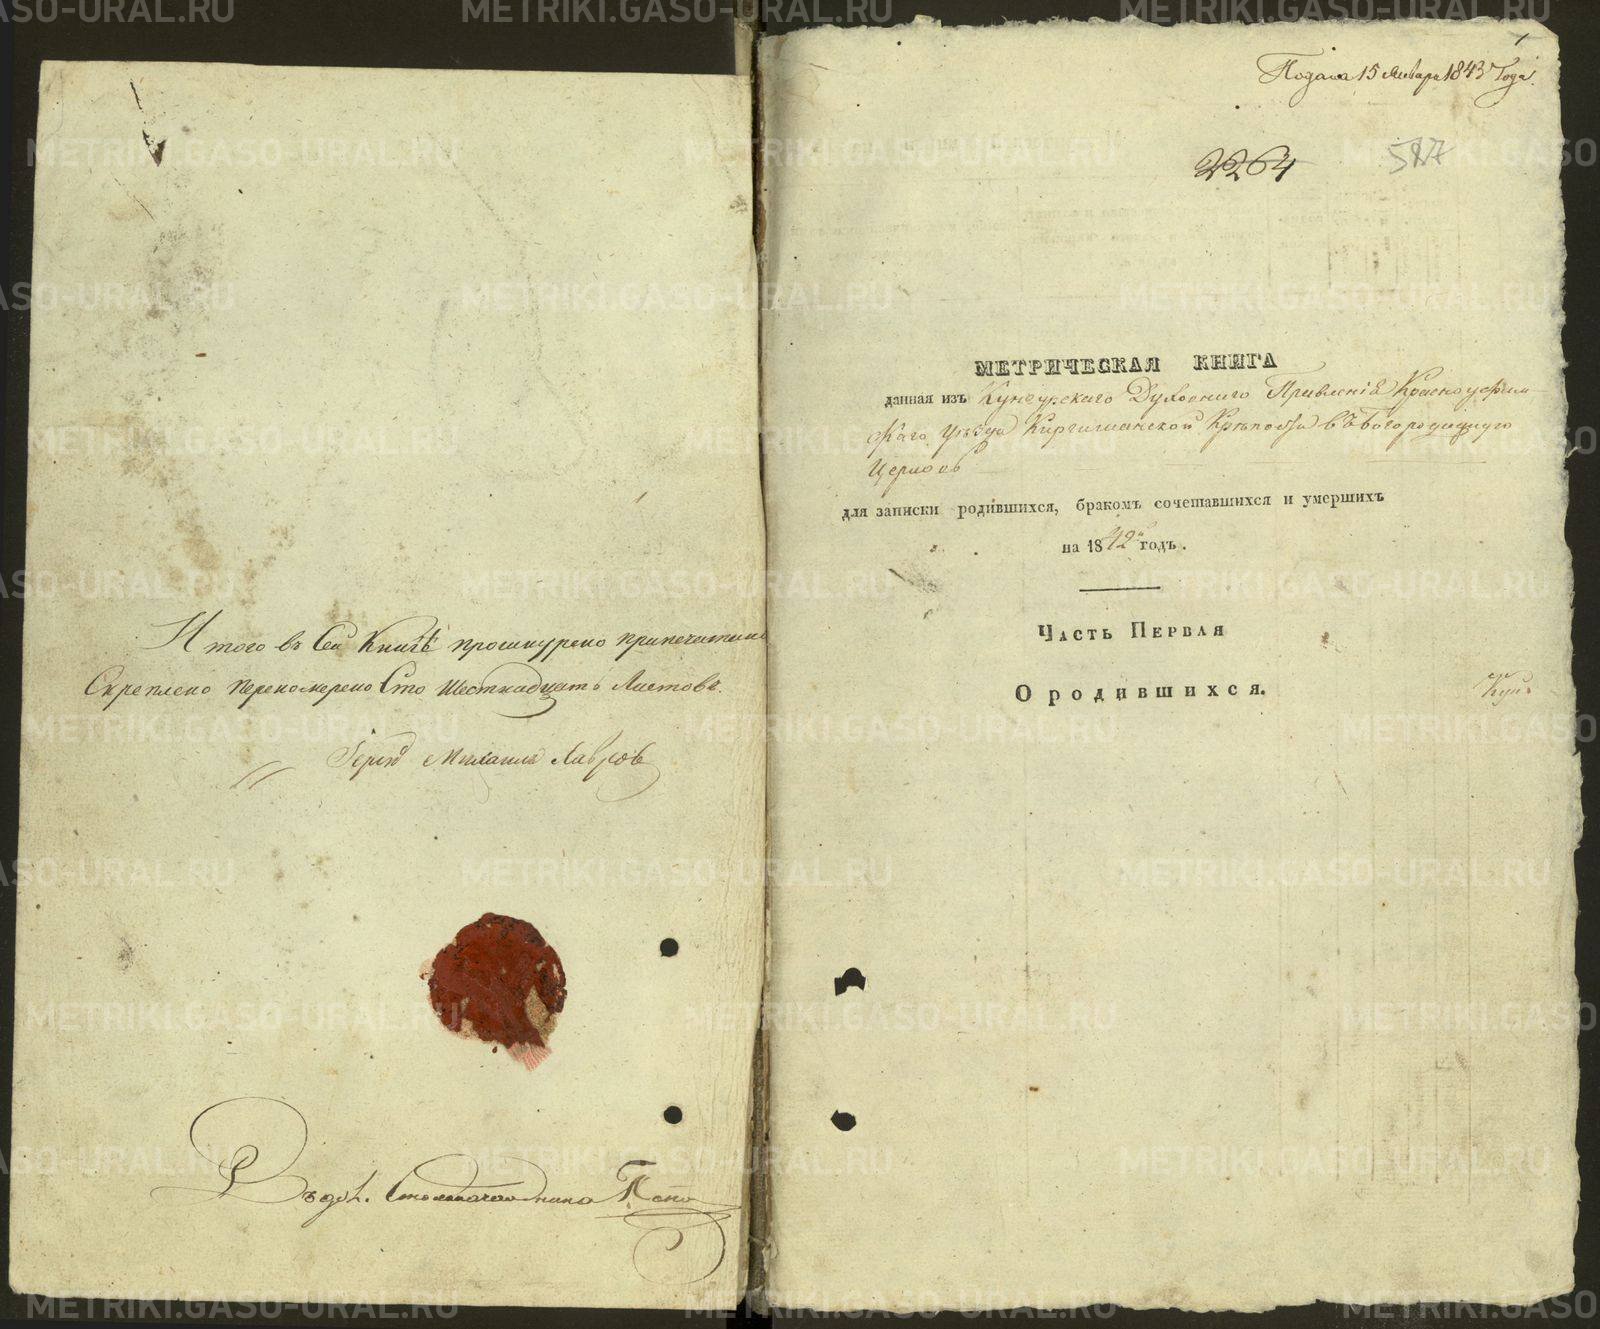 Итого въ сей Книгѣ прошнурено припечатано
Скреплено переномерено Сто шестнадцать Листовъ.
Іерей Михаилъ Лавровъ
Подана 15 Января 1843 Года.
2264
МЕТРИЧЕСКАЯ КНИГА
данная изъ Кунгурскаго Духовнаго Правленія Красноуфим
скаго уѣзда Киргишанской Крѣпости въ Богородицкую
Церковь
для записки родившихся, бракомъ сочетавшихся и умершихъ
на 1842й годъ.
Часть Первая
О родившихся.
METRIKI.GASO-URAL.RU